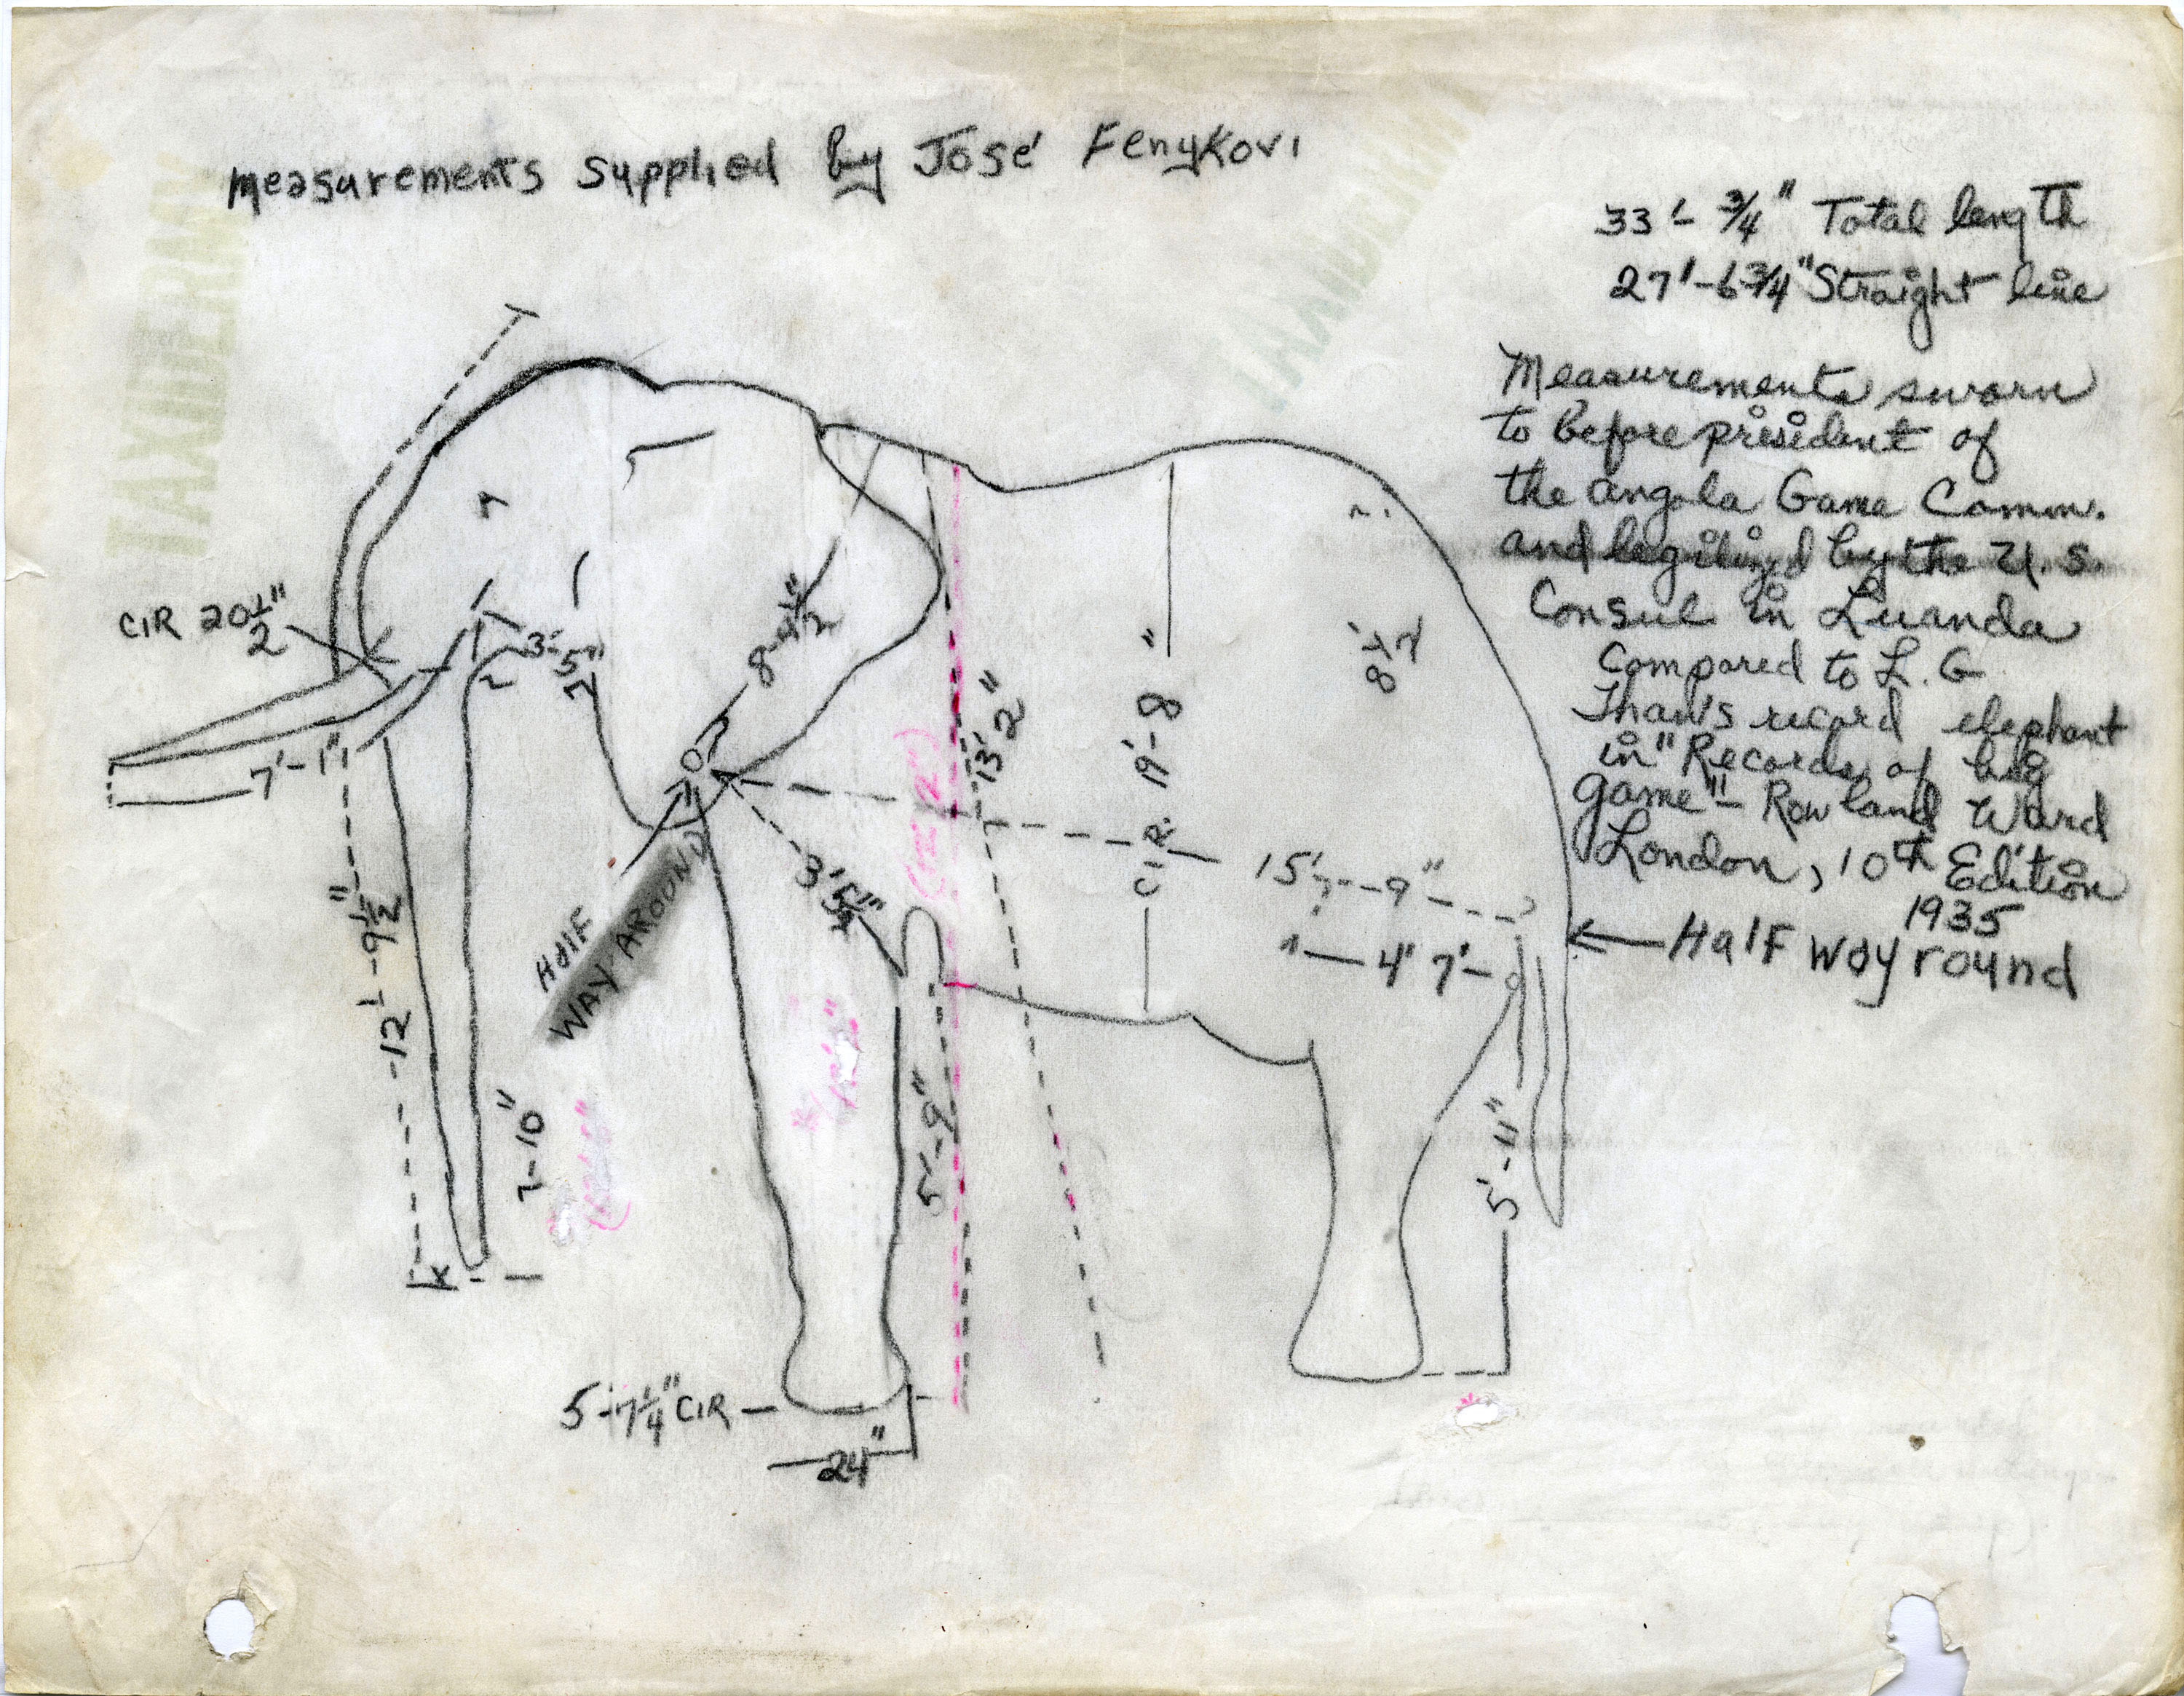 measurements supplied by José Fenykovi
33'-¾" Total length
27'-6¾" Straight line
Measurements sworn
to before president of
the angola Game Comm.
and legilized by the U.S.
Consul in Luanda
Compared to L. G
Thaws record elephant
in "Records of big
game" - Rowland Ward
London, 10th Edition
1935
Half way round
TAXIDERMY
TAXIDERMY
CIR 20½"
7'-1"
8'-
13'2"
CIR. 19'-8"
15'-9"
4' 7"
12'-9½"
HalF
WAY AROUND
7-10"
5'-9"
5'-11"
5-7¼" CIR
24"